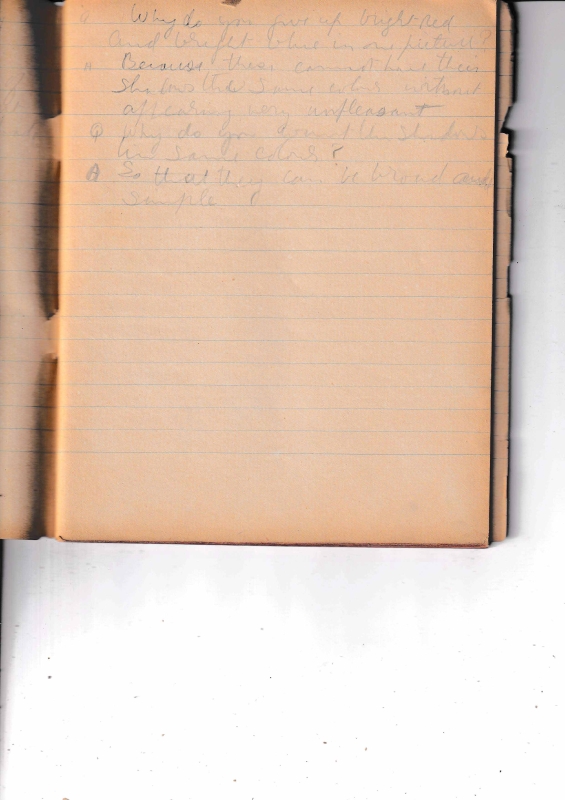 Q Why do you give up bright red
and bright blue in one picture?
A Because these cannot have their
shadows the same colors without
appearing very unpleasant
Q Why do you want the shadows
in same colors?
A So that they can be broad and
simple